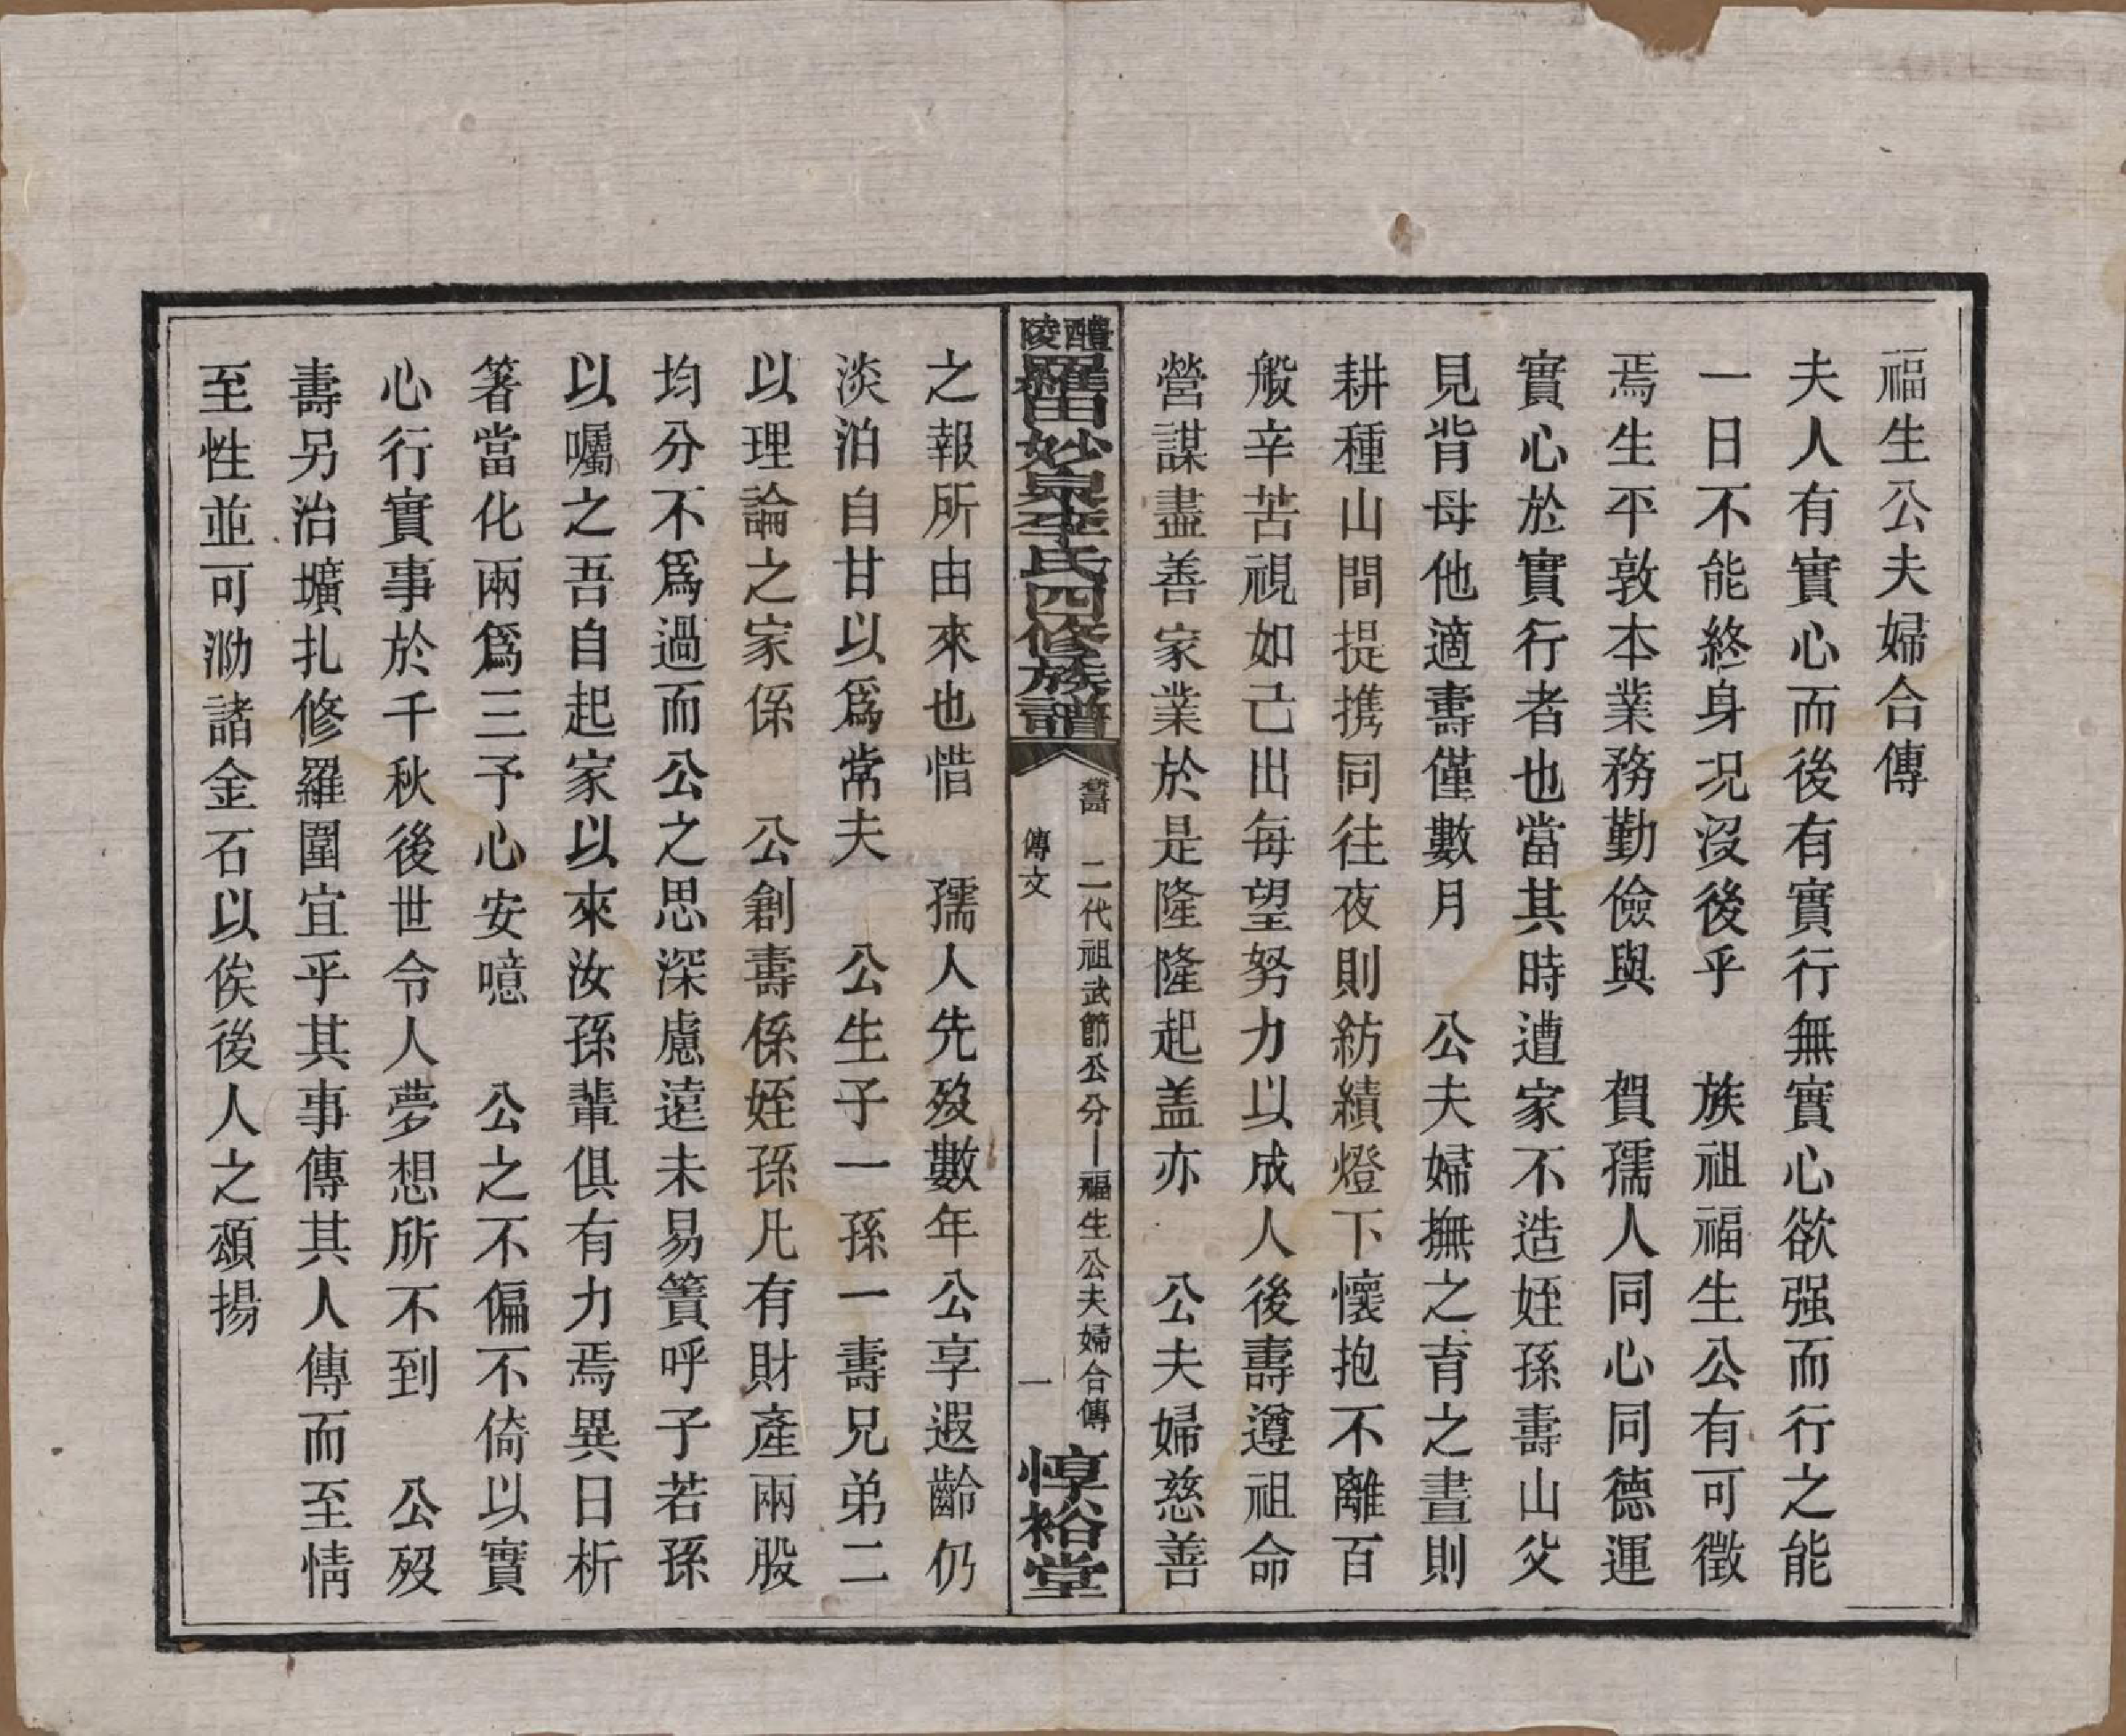 福生公夫婦合傳
夫人有實心而後有實行無實心欲强而行之能
一日不能終身況沒後乎　族祖福生公有可徵
焉生平敦本業務勤儉與　賀孺人同心同德運
實心於實行者也當其時遭家不造姪孫壽山父
見背母他適壽僅數月　公夫婦撫之育之晝則
耕種山間提携同往夜則紡績燈下懷抱不離百
般辛苦視如己出每望努力以成人後壽遵祖命
營謀盡善家業於是隆隆起盖亦　公夫婦慈善
醴陵羅田妙泉李氏四修族譜
二代祖武節公分—福生公夫婦合傳
傳文
一
惇裕堂
之報所由來也惜　孺人先歿數年公享遐齡仍
淡泊自甘以爲常夫　公生子一孫一壽兄弟二
以理論之家係　公創壽係姪孫凡有財產兩股
均分不爲過而公之思深慮遠未易簀呼子若孫
以囑之吾自起家以來汝孫輩俱有力焉異日析
箸當化兩爲三予心安噫　公之不偏不倚以實
心行實事於千秋後世令人夢想所不到　公歿
壽另治壙扎修羅圍宜乎其事傳其人傳而至情
至性並可泐諸金石以俟後人之頌揚